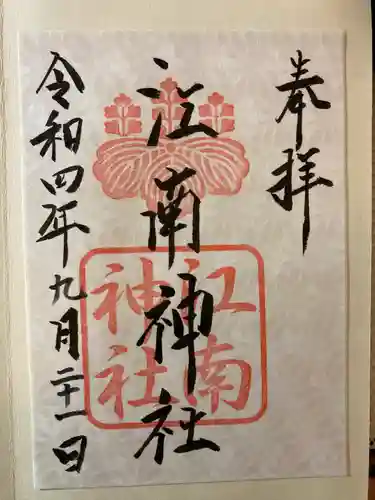 奉拝
江南神社
江南
神社
令和四年九月二十一日